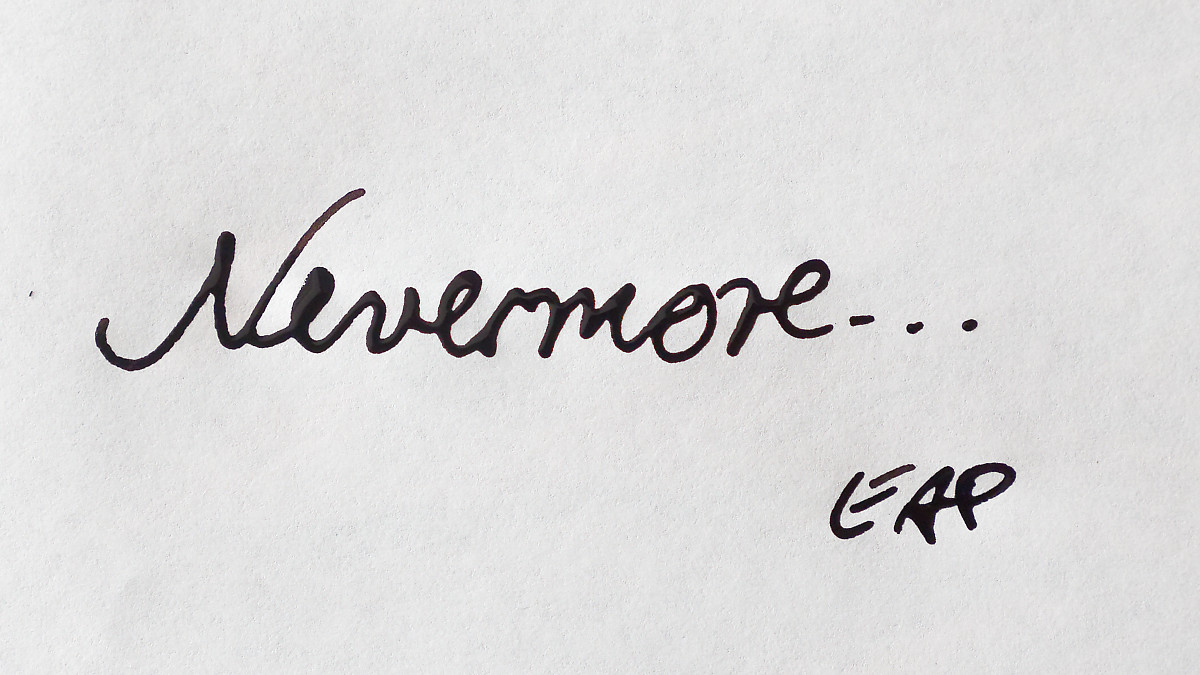 Nevermore...
EAP